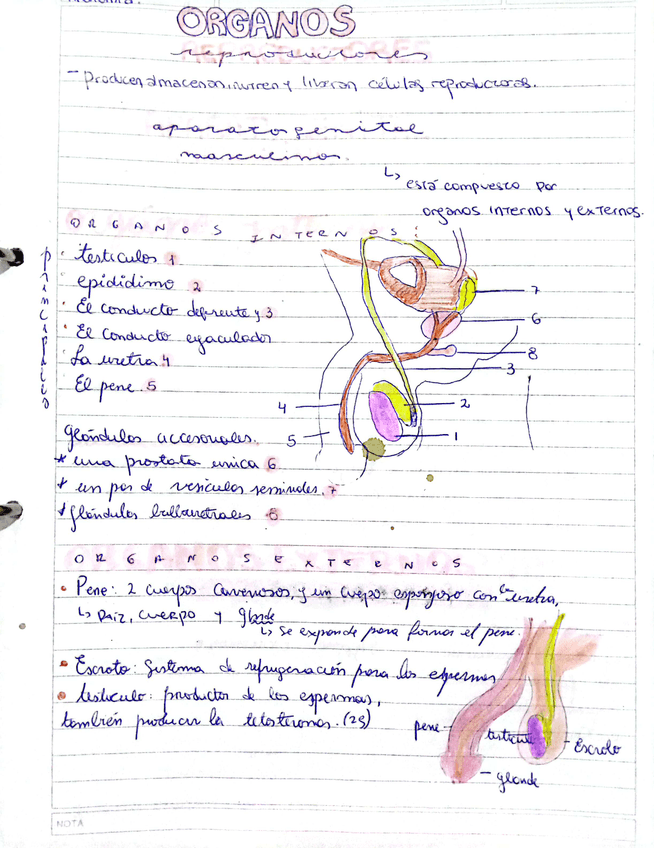 ORGANOS
reproductores
- Producen, almacenan, nutren y liberan células reproductoras.
aparato genital
masculinos.
↳ está compuesto por
organos internos y externos.
ORGANOS INTERNOS:
principales
· testiculos 1
· epididimo 2
· El conducto deferente y 3
· El conducto eyaculador
· La uretra 4
· El pene 5
7
6
8
3
2
1
4
5
glándulas accesorias.
* una prostata unica 6
* un par de vesiculas seminales. 7
* glándulas bulbouretrales 8
ORGANOS EXTERNOS
• Pene: 2 cuerpos cavernosos, y un cuerpo esponjoso con la uretra,
↳ Raiz, cuerpo y glande
↳ Se expande para formar el pene.
• Escroto: Sistema de refrigeración para los espermas
• testiculo: productor de los espermas,
también producir la testosterona. (25)
pene
testiculo
Escroto
- glande
NOTA